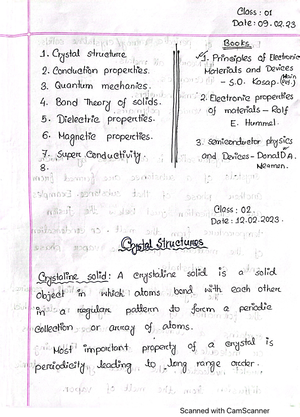 Class: 01
Date: 09.02.23
1. Crystal structure
2. Conduction properties.
3. Quantum mechanics.
4. Band Theory of solids.
5. Dielectric properties.
6. Magnetic properties.
7. Super Conductivity.
8.
Books
1. Principles of Electronic
Materials and Devices
- S.O. Kasap. (Main
2. Electronic properties
of materials - Rolf
E. Hummel.
3. Semiconductor physics
and Devices - Donald A.
Neamen.
Class: 02
Date: 12.02.2023.
Crystal Structures
Crystaline solid: A crystaline solid is a solid
object in which atoms bond with each other
in a regular pattern to form a periodic
collection or array of atoms.
Most important property of a crystal is
periodicity leading to long range order.
Scanned with CamScanner